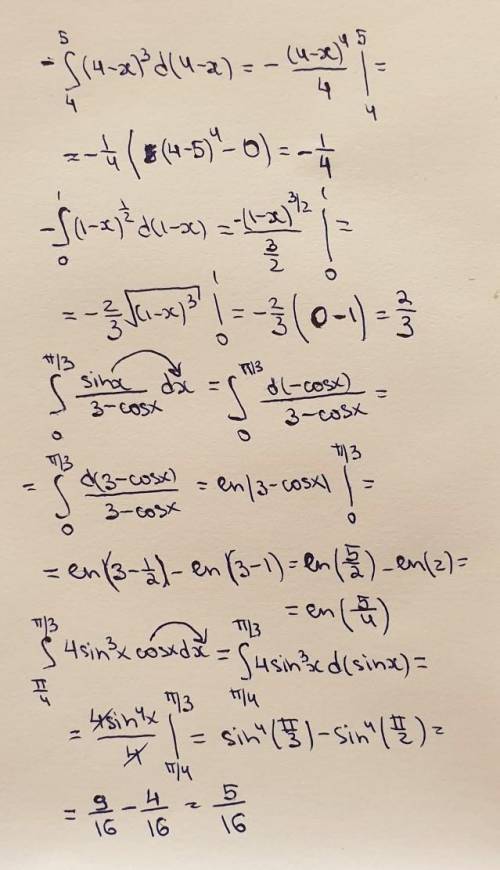 -∫₄⁵ (4-x)³ d(4-x) = - (4-x)⁴/4 |₄⁵ =
= -1/4 ((4-5)⁴ - 0) = -1/4
-∫₀¹ (1-x)^(1/2) d(1-x) = -(1-x)^(3/2) / (3/2) |₀¹ =
= -2/3 √(1-x)³ |₀¹ = -2/3 (0-1) = 2/3
∫₀^(π/3) sinx/(3-cosx) dx = ∫₀^(π/3) d(-cosx)/(3-cosx) =
= ∫₀^(π/3) d(3-cosx)/(3-cosx) = en|3-cosx| |₀^(π/3) =
= en(3-1/2) - en(3-1) = en(5/2) - en(2) =
= en(5/4)
∫_(π/4)^(π/3) 4sin³x cosxdx = ∫_(π/4)^(π/3) 4sin³x d(sinx) =
= 4sin⁴x/4 |_(π/4)^(π/3) = sin⁴(π/3) - sin⁴(π/2) =
= 9/16 - 4/16 = 5/16